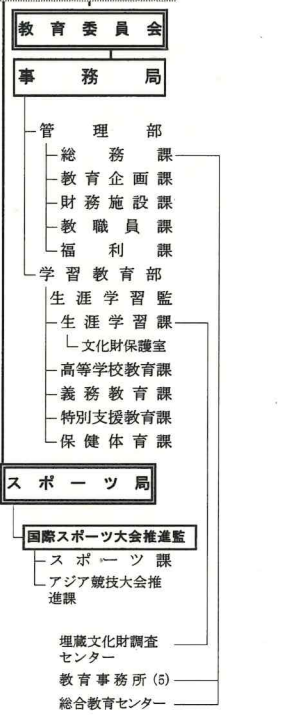 教育委員会
事務局
管理部
総務課
教育企画課
財務施設課
教職員課
福利課
学習教育部
生涯学習監
生涯学習課
文化財保護室
高等学校教育課
義務教育課
特別支援教育課
保健体育課
スポーツ局
国際スポーツ大会推進監
スポーツ課
アジア競技大会推
進課
埋蔵文化財調査
センター
教育事務所(5)
総合教育センター